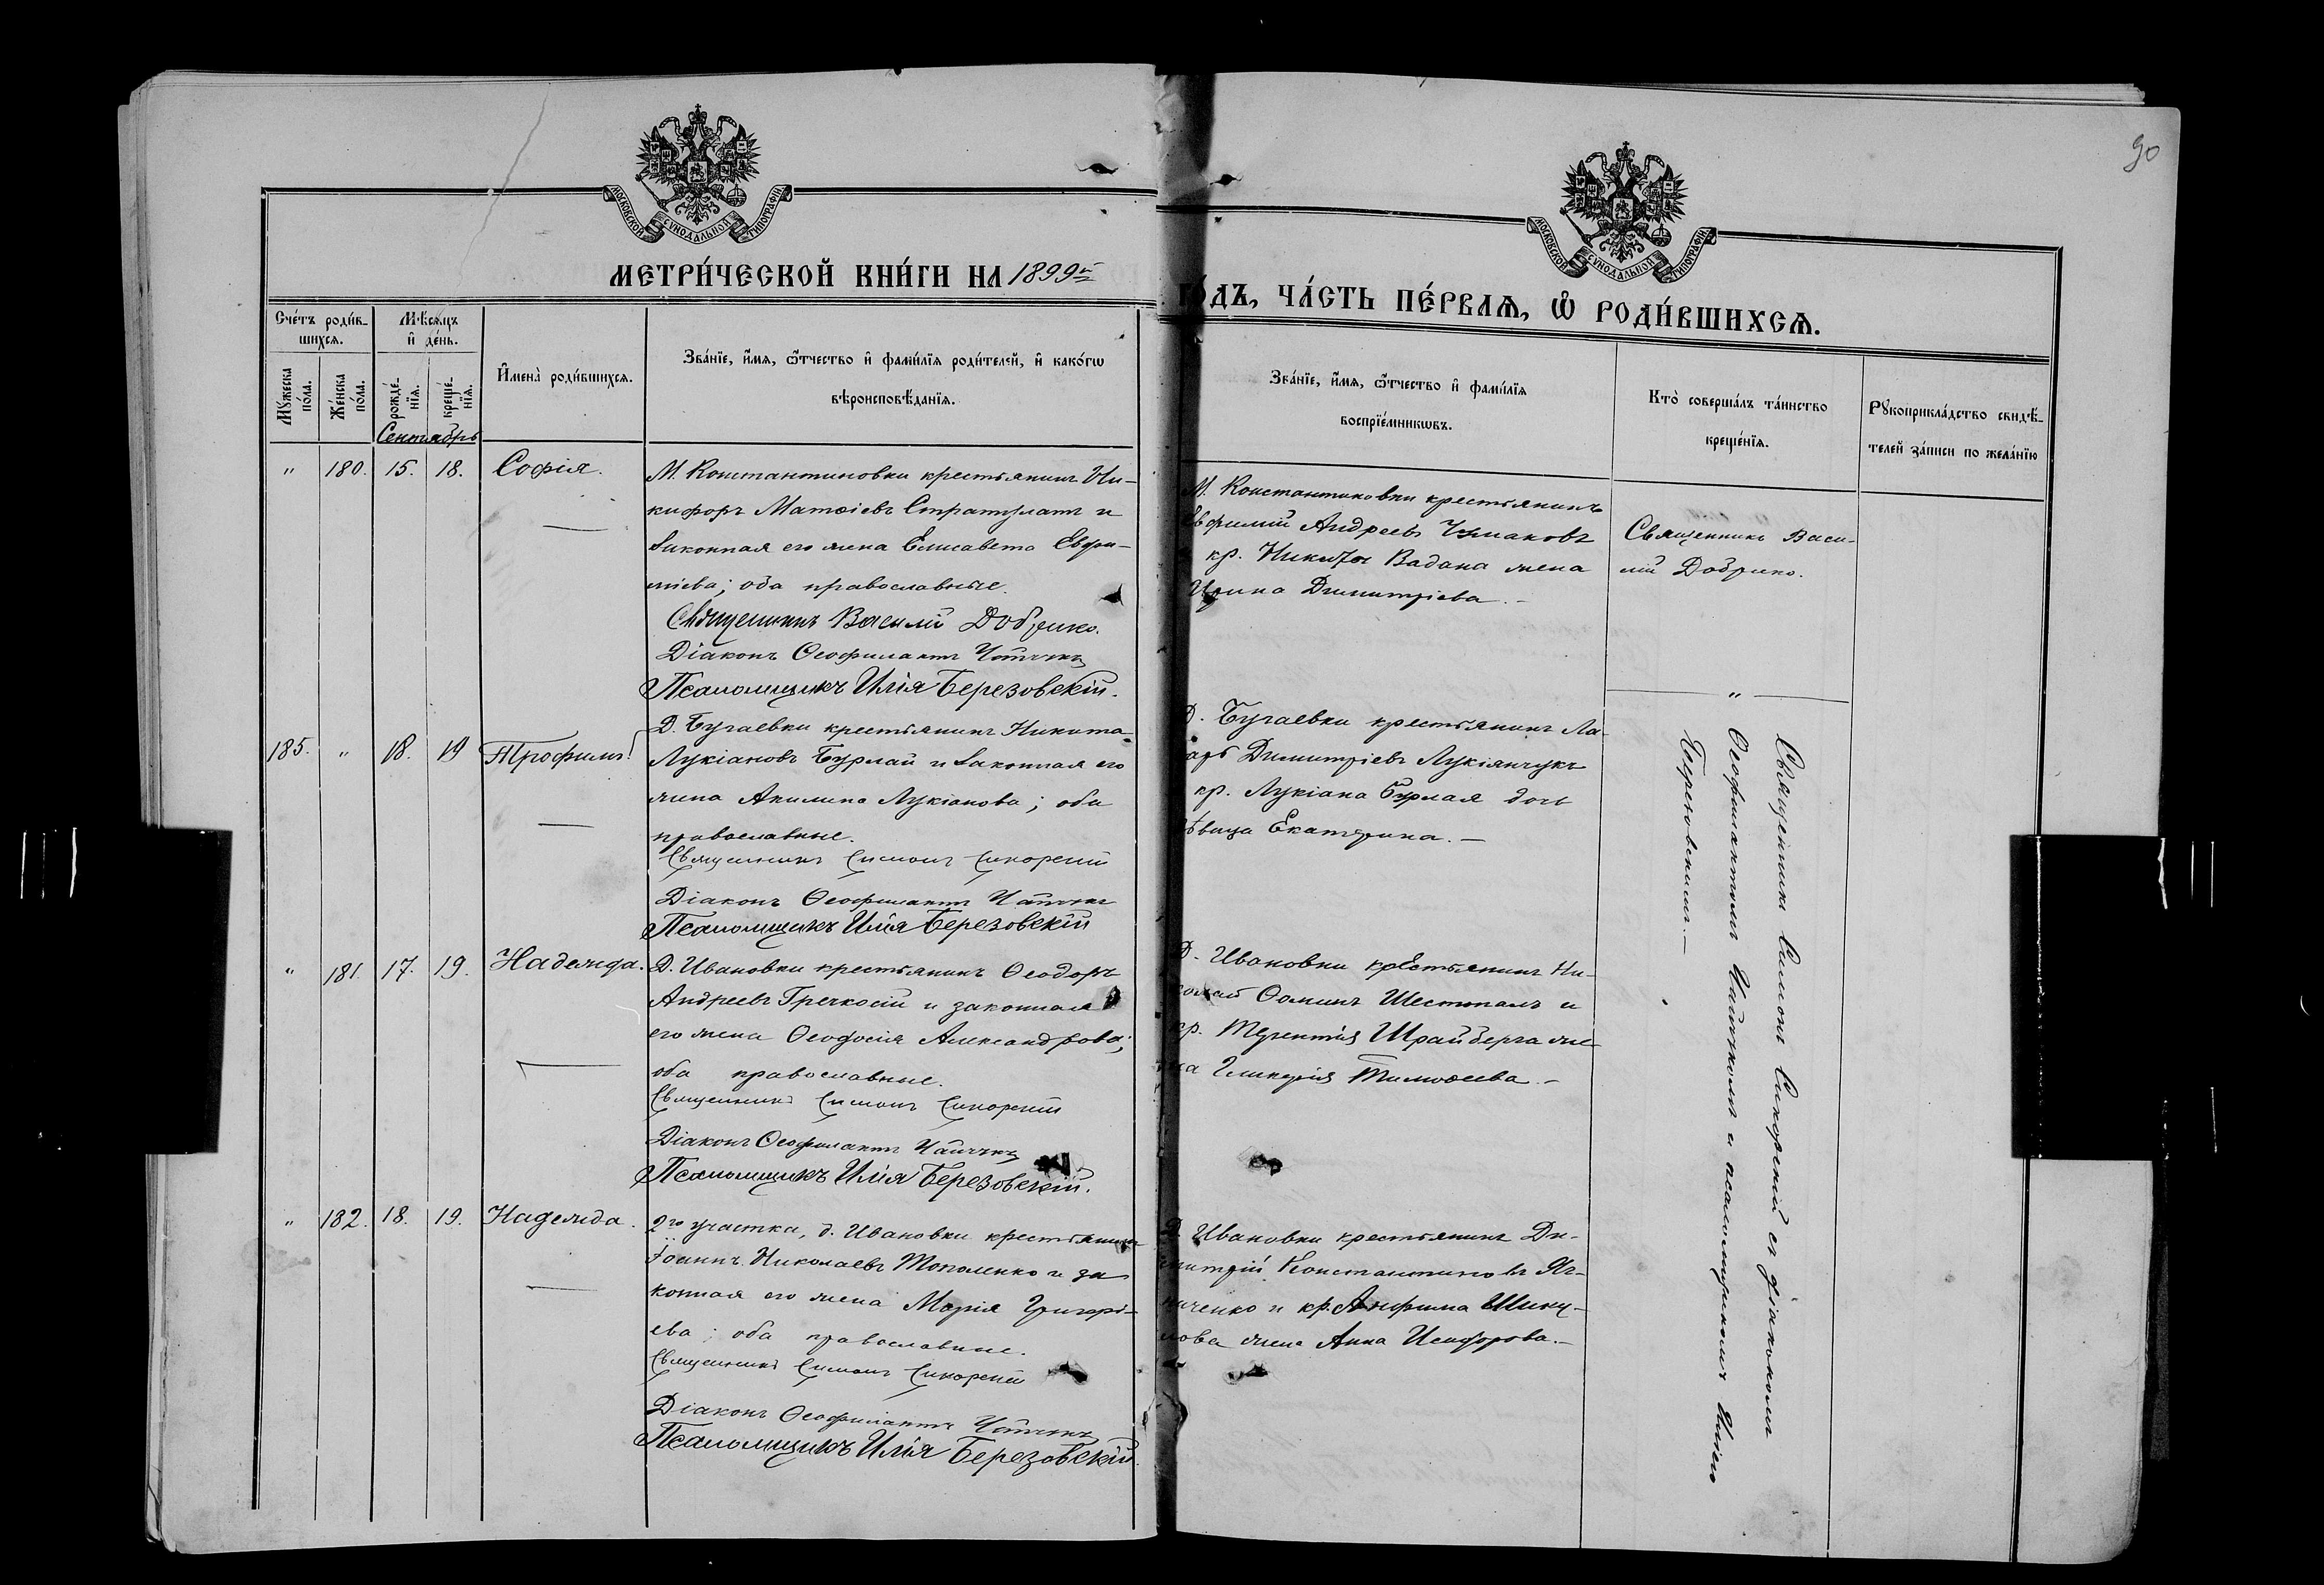 90
МОСКОВСКОЙ СУНОДАЛЬНОЙ ТИПОГРАФІИ
МОСКОВСКОЙ СУНОДАЛЬНОЙ ТИПОГРАФІИ
МЕТРИ́ЧЕСКОЙ КНИ́ГИ НА 1899й
ГО́ДЪ, ЧА́СТЬ ПЕ́РВАѦ, Ѽ РОДИ́ВШИХСѦ.
Сче́тъ роди́в-
шихсѧ.
Мѣ́сѧцъ
и҆ де́нь.
И҆мена̀ роди́вшихсѧ.
Зва́нїе, и҆́мѧ, ѻ҆́тчество и҆ фами́лїѧ роди́телей, и҆ како́гѡ
вѣроисповѣ́данїѧ.
Мꙋ́жеска по́ла.
Же́нска по́ла.
рожде́нїѧ.
креще́нїѧ.
Сентябрь
Зва́нїе, и҆́мѧ, ѻ҆́тчество и҆ фами́лїѧ
воспрїе́мникѡвъ.
Кто̀ соверша́лъ та́инство
креще́нїѧ.
Рꙋкоприкла́дство свидѣ́-
телей за́писи по жела́нїю
" 180. 15. 18. Софія.
М. Константиновки крестьянинъ Ни-
кифоръ Матѳіевъ Стратулатъ и
законная его жена Елисавета Евфи-
міева; оба православные.
Священникъ Василій Добрико.
Діаконъ Ѳеофилактъ
Псаломщикъ Илія Березовскій.
М. Константиновки крестьянинъ
Евфимій Андреевъ Чумаковъ
и кр. Никиты Вадана жена
Ирина Димитріева.-
Священникъ Васи-
лій Добрико.
"
185. " 18. 19 Трофимъ.
Д. Бугаевки крестьянинъ Никита
Лукіановъ Бурлай и законная его
жена Акилина Лукіанова; оба
православные.
Священникъ Симонъ Сикорскій
Діаконъ Ѳеофилактъ
Псаломщикъ Илія Березовскій
Д. Бугаевки крестьянинъ Ла-
зарь Димитріевъ Лукіянчукъ
кр. Лукіана Бурлая дочь
дѣвица Екатерина.-
Священникъ Симонъ Сикорскій съ діакономъ
Ѳеофилактомъ и псаломщикомъ Иліею
Березовскимъ.-
" 181. 17. 19. Надежда.
Д. Ивановки крестьянинъ Ѳеодоръ
Андреевъ Гречкосій и законная
его жена Ѳеодосія Александрова;
оба православные.
Священникъ Симонъ Сикорскій
Діаконъ Ѳеофилактъ
Псаломщикъ Илія Березовскій.
Д. Ивановки крестьянинъ Ни-
колай Ѳоминъ Шестопалъ и
кр. Терентія Шрайберга же-
на Гликерія Тимоѳеева.-
" 182. 18. 19. Надежда.
2го участка, д. Ивановки крестьянинъ
Іоаннъ Николаевъ Тополенко и за
конная его жена Марія Григорі-
ева; оба православные.
Священникъ Симонъ Сикорскій
Діаконъ Ѳеофилактъ
Псаломщикъ Илія Березовскій.
Д. Ивановки крестьянинъ Ди-
митрій Константиновъ
и кр. Анфима Шику-
лова жена Анна Исидорова.-